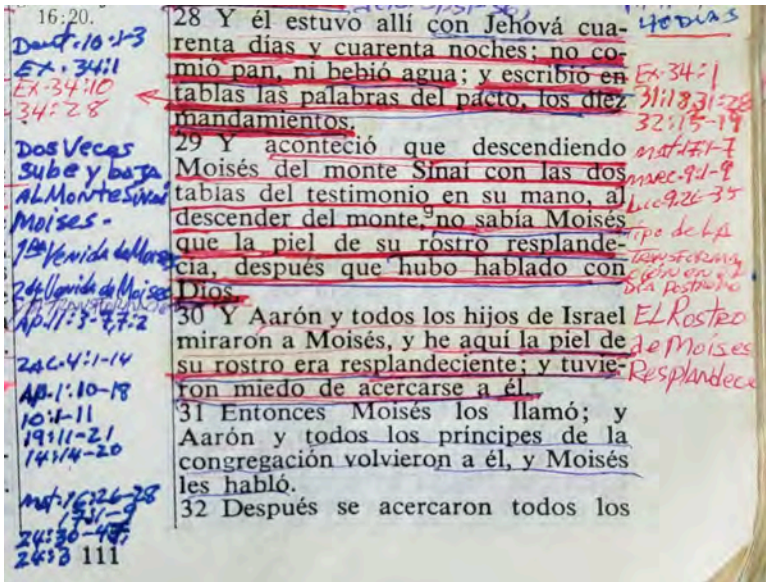 16:20.
Deut.10:1-3
Ex.34:1
Ex-34:10
34:28
Dos Veces
sube y baja
AL Monte Sinaí
Moises-
1ra Venida de Moises
2da Venida de Moises
Ap.11:3-7,7:2
Zac.4:1-14
Ap.1:10-18
10:1-11
19:11-21
14:14-20
mat.16:26-28
17:1-9
24:30-
24:3
111
28 Y él estuvo allí con Jehová cua-
renta días y cuarenta noches; no co-
mió pan, ni bebió agua; y escribió en
tablas las palabras del pacto, los diez
mandamientos.
29 Y aconteció que descendiendo
Moisés del monte Sinaí con las dos
tablas del testimonio en su mano, al
descender del monte,9 no sabía Moisés
que la piel de su rostro resplande-
cía, después que hubo hablado con
Dios.
30 Y Aarón y todos los hijos de Israel
miraron a Moisés, y he aquí la piel de
su rostro era resplandeciente; y tuvie-
ron miedo de acercarse a él.
31 Entonces Moisés los llamó; y
Aarón y todos los príncipes de la
congregación volvieron a él, y Moisés
les habló.
32 Después se acercaron todos los
40 DÍAS
Ex-34:1
31:18,31:28
32:15-19
mat.17:1-7
marc.9:1-9
Luc.9:26-35
Tipo de LA
TRANSFORMA
ción en el
Día postrero
EL Rostro
de Moises
Resplandece